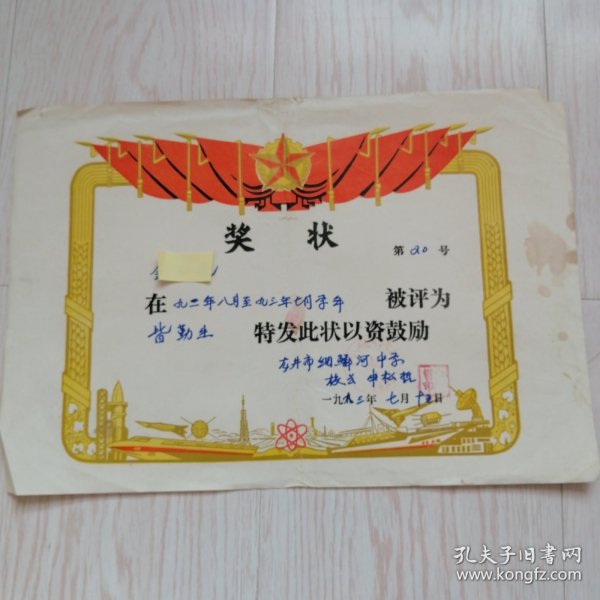 奖状
第20号
在九二年八月至九三年七月学年 被评为
皆勤生 特发此状以资鼓励
龙井市细鳞河中学
校长 申松哲
一九九三年七月十五日
孔夫子旧书网
www.kongfz.com